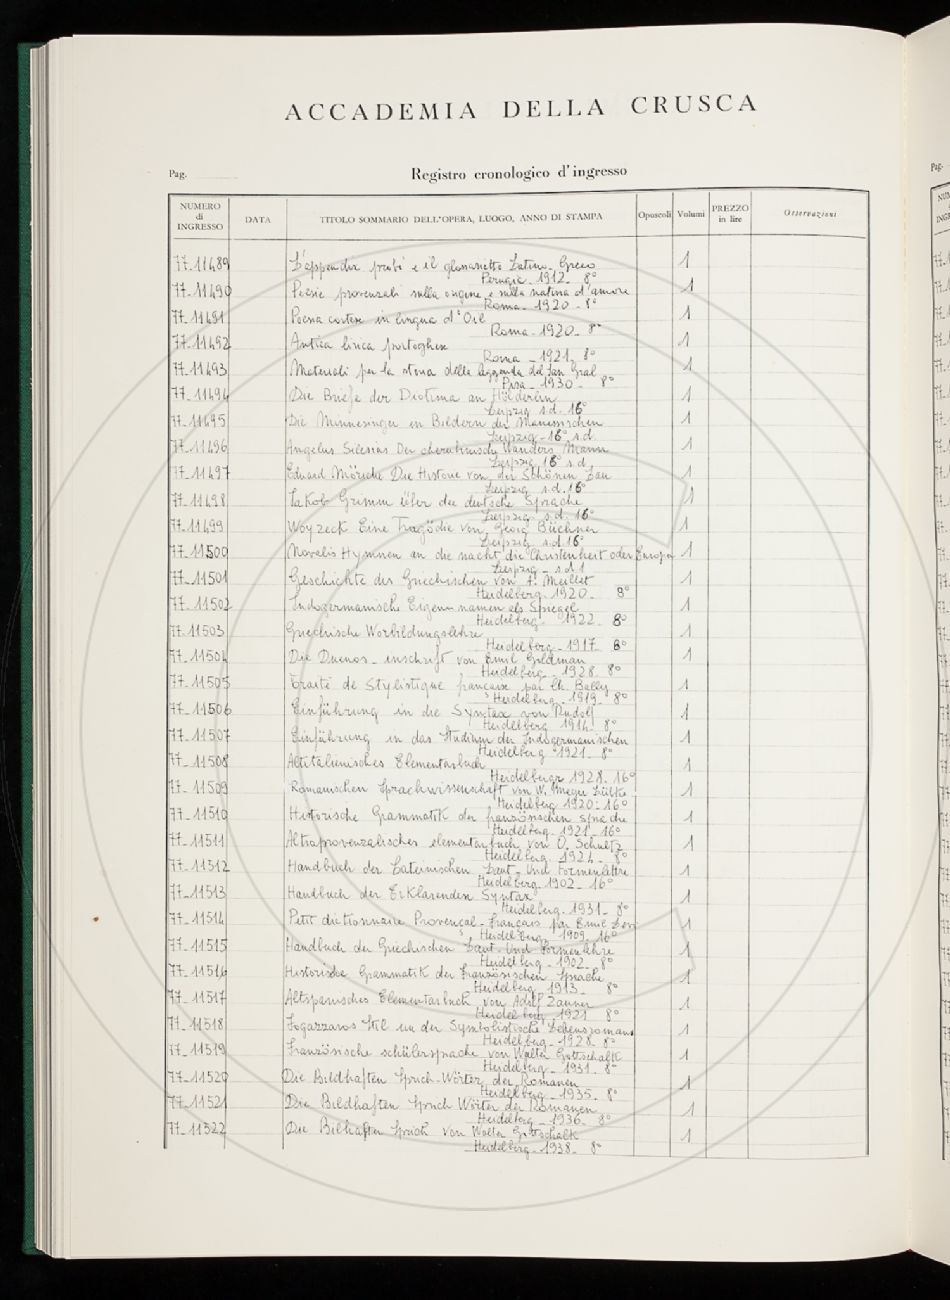 ACCADEMIA DELLA CRUSCA
Pag.
Registro cronologico d'ingresso
NUMERO di INGRESSO DATA TITOLO SOMMARIO DELL'OPERA, LUOGO, ANNO DI STAMPA Opuscoli Volumi PREZZO in lire Osservazioni
77-11489 L'appendix probi e il glossarietto Latino-Greco 1
Perugia - 1912 - 8°
77-11490 Poesie provenzali sulla origine e sulla natura d'amore 1
Roma - 1920 - 8°
77-11491 Poesia cortese in lingua d'Oil 1
Roma - 1920 - 8°
77-11492 Antica lirica portoghese 1
Roma - 1921 - 8°
77-11493 Materiali per la storia della leggenda del San Gral 1
Pisa - 1930 - 8°
77-11494 Die Briefe der Diotima an Hölderlin 1
Leipzig s.d. 16°
77-11495 Die Minnesinger in Bildern der Manessischen 1
Leipzig - 16° s.d.
77-11496 Angelus Silesius Der cherubinische Wanders Mann 1
Leipzig 16° s.d.
77-11497 Eduard Möricke Die Historie von der Schönen Lau 1
Leipzig s.d. 16°
77-11498 Jakob Grimm über die deutsche Sprache 1
Leipzig s.d. 16°
77-11499 Woyzeck Eine Tragödie von Georg Büchner 1
Leipzig s.d. 16°
77-11500 Novalis Hymnen an die nacht die Christenheit oder Europa 1
Leipzig - s.d.
77-11501 Geschichte des Griechischen von A. Meillet 1
Heidelberg - 1920 - 8°
77-11502 Indogermanische Eigennamen als Spiegel 1
Heidelberg - 1922 - 8°
77-11503 Griechische Wortbildungslehre 1
Heidelberg - 1917 8°
77-11504 Die Duenos-inschrift von Emil Goldman 1
Heidelberg - 1928 - 8°
77-11505 Traité de Stylistique française par Ch. Bally 1
Heidelberg - 1919 - 8°
77-11506 Einführung in die Syntax von Rudolf 1
Heidelberg 1914 - 8°
77-11507 Einführung in das Studium der Indogermanischen 1
Heidelberg 1921 - 8°
77-11508 Altitalienisches Elementarbuch 1
Heidelberg 1928 - 16°
77-11509 Romanischen Sprachwissenschaft von W. Meyer Lübke 1
Heidelberg 1920 - 16°
77-11510 Historische Grammatik der französischen sprache 1
Heidelberg - 1921 - 16°
77-11511 Altraprovenzalisches elementarbuch von O. Schultz 1
Heidelberg - 1924 - 8°
77-11512 Handbuch der Lateinischen Laut-Und Formenlehre 1
Heidelberg - 1902 - 16°
77-11513 Handbuch der Erklarenden Syntax 1
Heidelberg - 1931 - 8°
77-11514 Petit dictionnaire Provençal-Français par Emil Levy 1
Heidelberg 1909 - 16°
77-11515 Handbuch der Griechischen Laut-Und Formenlehre 1
Heidelberg - 1902 - 8°
77-11516 Historische Grammatik der Französischen Sprache 1
Heidelberg 1913 - 8°
77-11517 Altspanisches Elementarbuch von Adolf Zauner 1
Heidelberg 1921 8°
77-11518 Fogazzaros Stil un der Symbolistische Lebensromans 1
Heidelberg - 1928 - 8°
77-11519 Französische schülersprache von Walter Gottschalk 1
Heidelberg - 1931 - 8°
77-11520 Die Bildhaften Spruch-Wörter der Romanen 1
Heidelberg - 1935 - 8°
77-11521 Die Bildhaften Spruch Wörter der Romanen 1
Heidelberg - 1936 - 8°
77-11522 Die Bilhaften Spruch von Walter Gottschalk 1
Heidelberg - 1938 - 8°